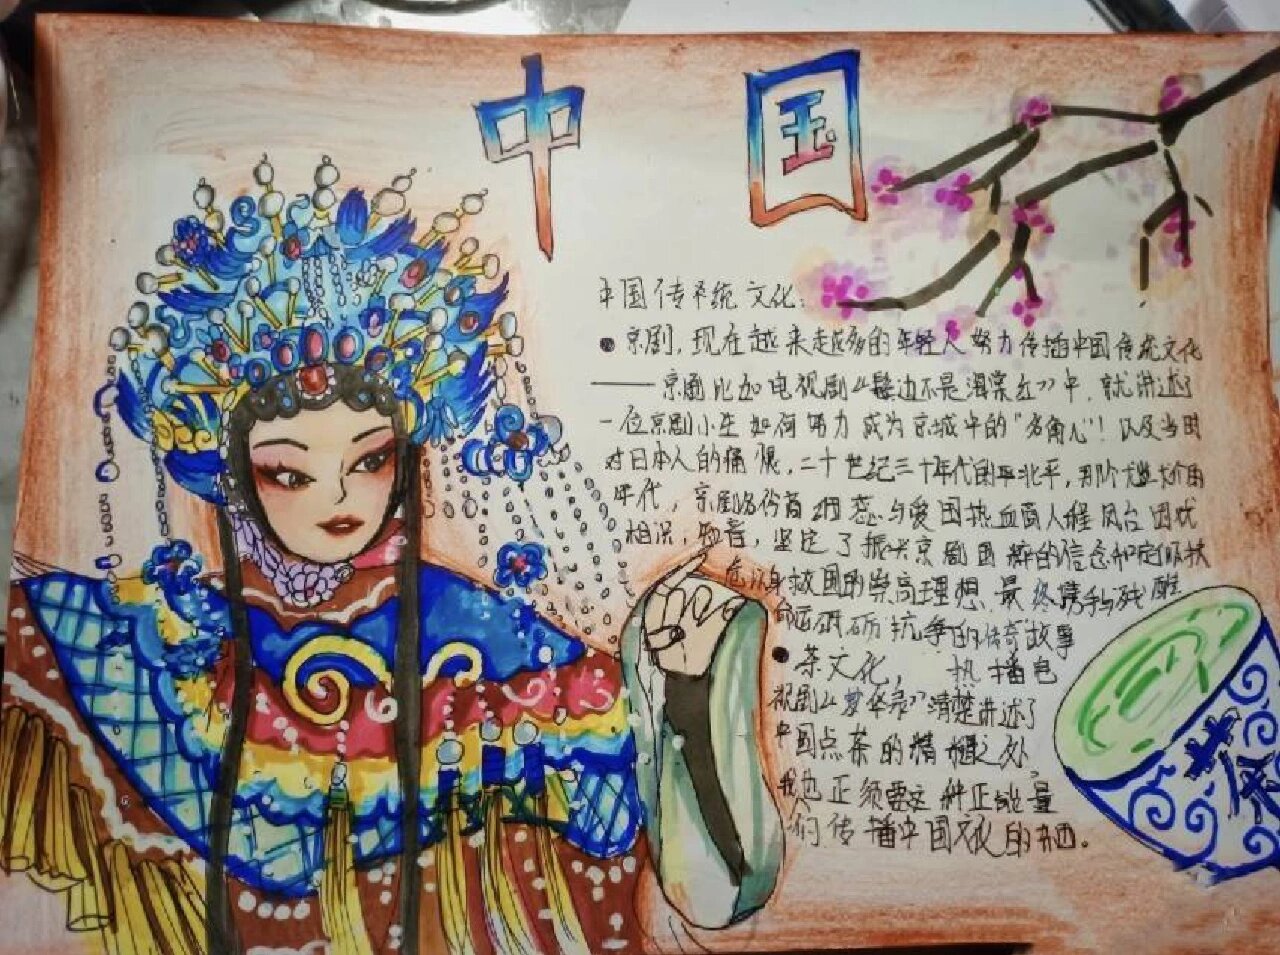 中国
中国传统文化：
京剧，现在越来越多的年轻人努力传播中国传统文化
——京剧比如电视剧《鬓边不是海棠红》中，就讲述了
一位京剧小生如何努力成为京城中的"名角儿"！以及当时
对日本人的痛恨，二十世纪三十年代的北平，那个
年代，京剧名伶商细蕊与爱国热血商人程凤台因戏
相识，知音，坚定了振兴京剧国粹的信念和
危以身救国的崇高理想，最终携手与
命运 砥砺抗争的传奇故事
茶文化，热播电
视剧《梦华录》清楚讲述了
中国点茶的精髓之处
我也正须要这种正能量
们传播中国文化的东西。
茶